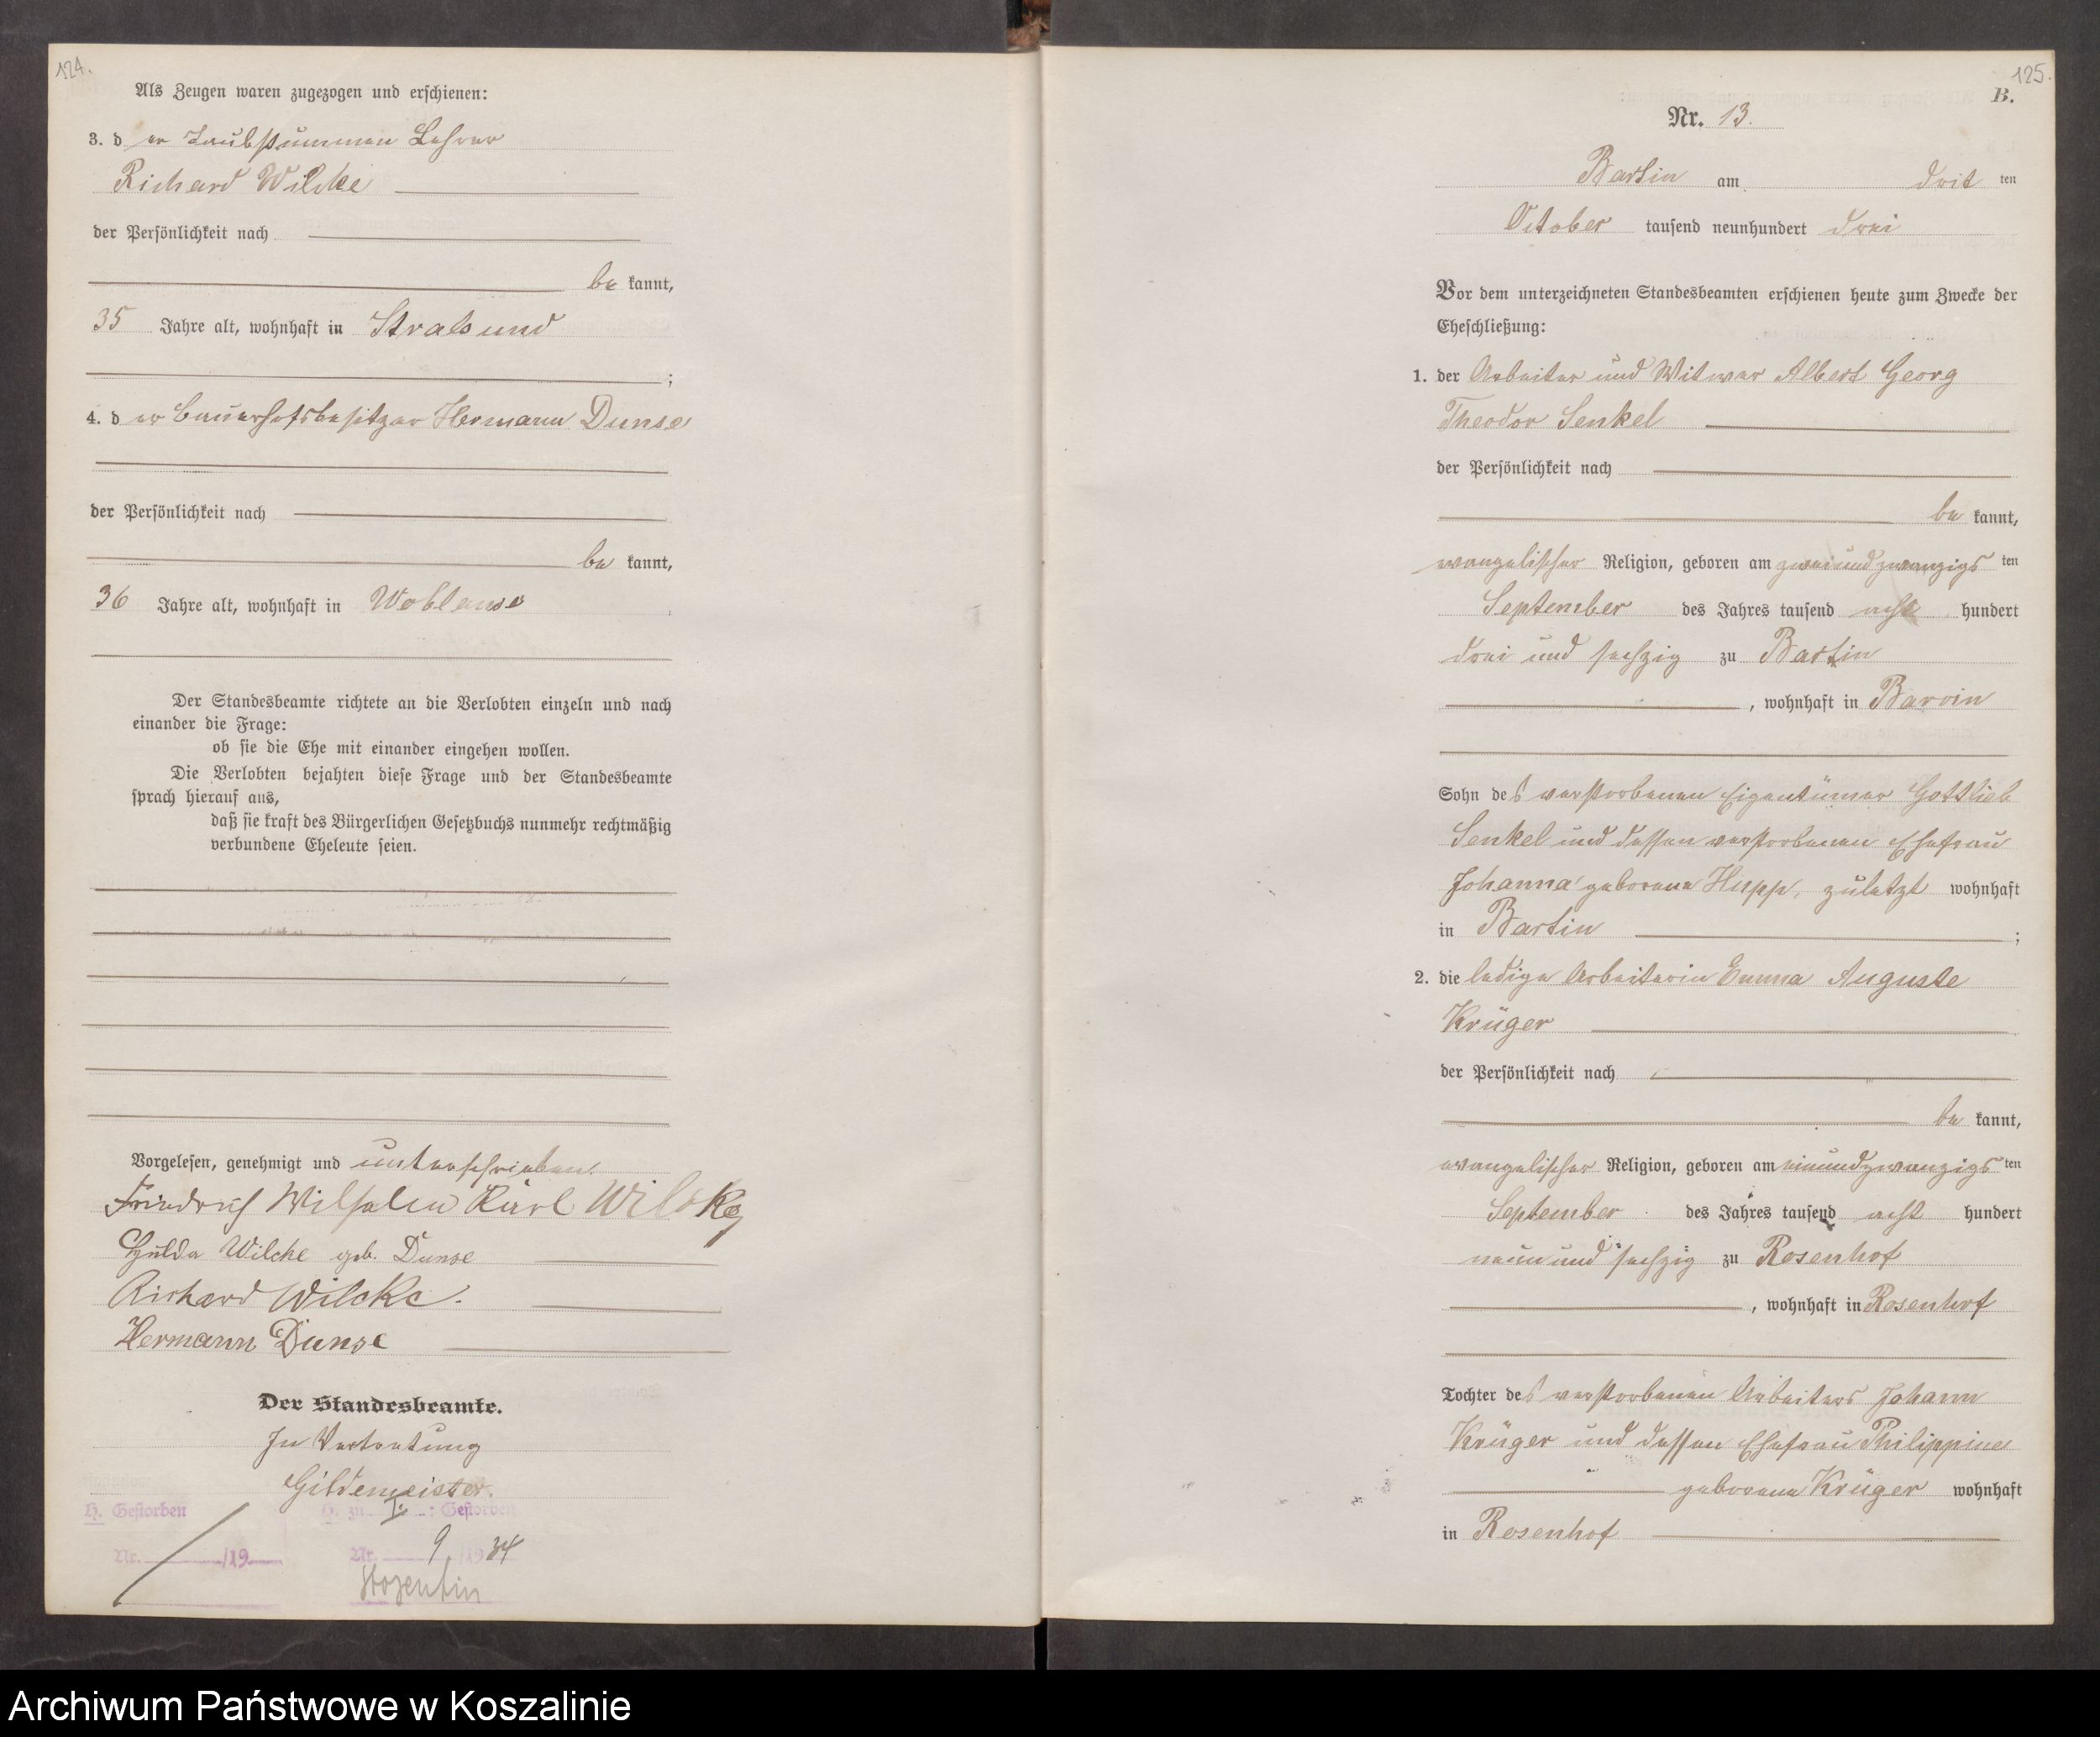 124.
Als Zeugen waren zugezogen und erschienen:
3. d er Taubstummen Lehrer
Richard Wilcke
der Persönlichkeit nach
be kannt,
35 Jahre alt, wohnhaft in Stralsund
;
4. d er Bauerhofsbesitzer Hermann Dunse
der Persönlichkeit nach
be kannt,
36 Jahre alt, wohnhaft in Woblanse
Der Standesbeamte richtete an die Verlobten einzeln und nach
einander die Frage:
ob sie die Ehe mit einander eingehen wollen.
Die Verlobten bejahten diese Frage und der Standesbeamte
sprach hierauf aus,
daß sie kraft des Bürgerlichen Gesetzbuchs nunmehr rechtmäßig
verbundene Eheleute seien.
Vorgelesen, genehmigt und unterschrieben.
Friedrich Wilhelm Karl Wilcke
Hulda Wilcke geb. Dunse
Richard Wilcke.
Hermann Dunse
Der Standesbeamte.
In Vertretung
Gildemeister.
H. Gestorben
Nr. /19
H. zu I. : Gestorben
Nr. 9 /19 34
Stojentin
125.
B.
Nr. 13.
Bartin am drit ten
October tausend neunhundert drei
Vor dem unterzeichneten Standesbeamten erschienen heute zum Zwecke der
Eheschließung:
1. der Arbeiter und Witwer Albert Georg
Theodor Senkel
der Persönlichkeit nach
be kannt,
evangelischer Religion, geboren am zweiundzwanzigs ten
September des Jahres tausend acht hundert
drei und sechzig zu Bartin
, wohnhaft in Barvin
Sohn des verstorbenen Eigentümer Gottlieb
Senkel und dessen verstorbenen Ehefrau
Johanna geborene Hupp, zuletzt wohnhaft
in Bartin ;
2. die ledige Arbeiterin Emma Auguste
Krüger
der Persönlichkeit nach
be kannt,
evangelischer Religion, geboren am einundzwanzigs ten
September des Jahres tausend acht hundert
neun und sechzig zu Rosenhof
, wohnhaft in Rosenhof
Tochter des verstorbenen Arbeiters Johann
Krüger und dessen Ehefrau Philippine
geborene Krüger wohnhaft
in Rosenhof
Archiwum Państwowe w Koszalinie